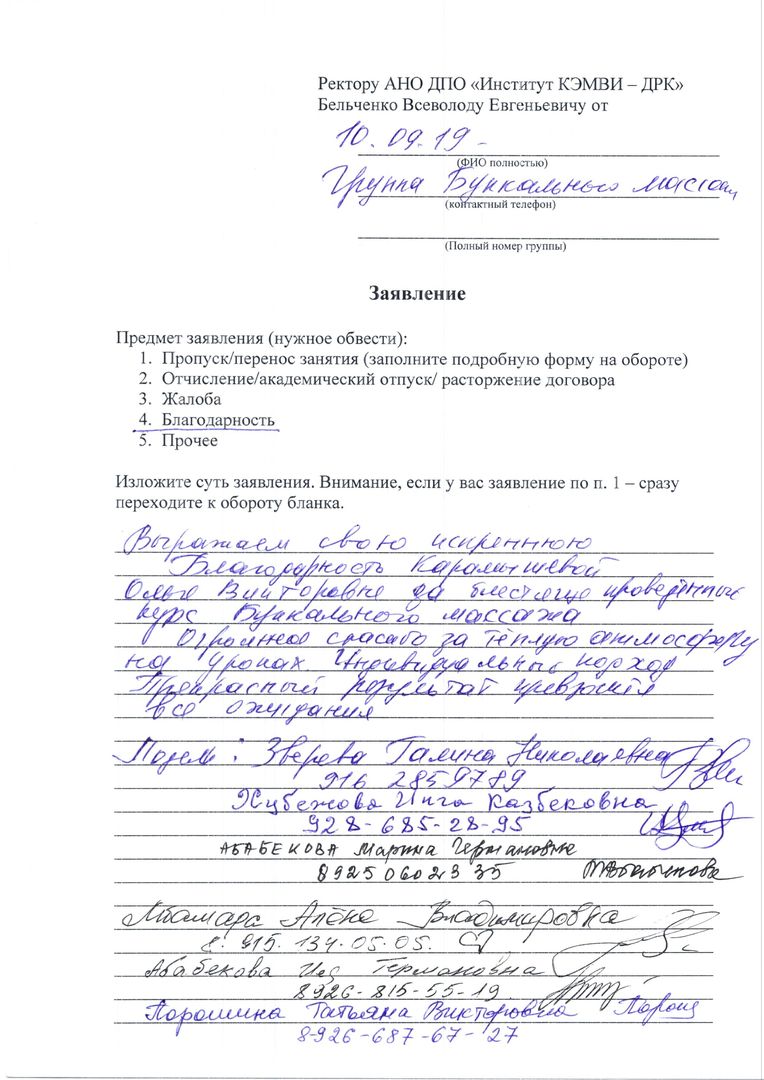 Ректору АНО ДПО «Институт КЭМВИ – ДРК»
Бельченко Всеволоду Евгеньевичу от
10.09.19 -
(ФИО полностью)
Группа Буккального массаж
(контактный телефон)
(Полный номер группы)
Заявление
Предмет заявления (нужное обвести):
1. Пропуск/перенос занятия (заполните подробную форму на обороте)
2. Отчисление/академический отпуск/ расторжение договора
3. Жалоба
4. Благодарность
5. Прочее
Изложите суть заявления. Внимание, если у вас заявление по п. 1 – сразу
переходите к обороту бланка.
Выражаем свою искреннюю
Благодарность Карамышевой
Ольге Викторовне за блестяще проведённый
курс Буккального массажа
Огромное спасибо за тёплую атмосферу
на уроках. Индивидуальный подход
Прекрасный результат превзошёл
все ожидания
Зверева Галина Николаевна
916 2859789
Хубежова Инга Казбековна
928-685-28-95
АБАБЕКОВА Марина Германовна
8925 0602335
Алёна Владимировна
8. 915. 134. 05. 05.
Абабекова Германовна
8926-815-55-19
Порошина Татьяна Викторовна
8-926-687-67-27